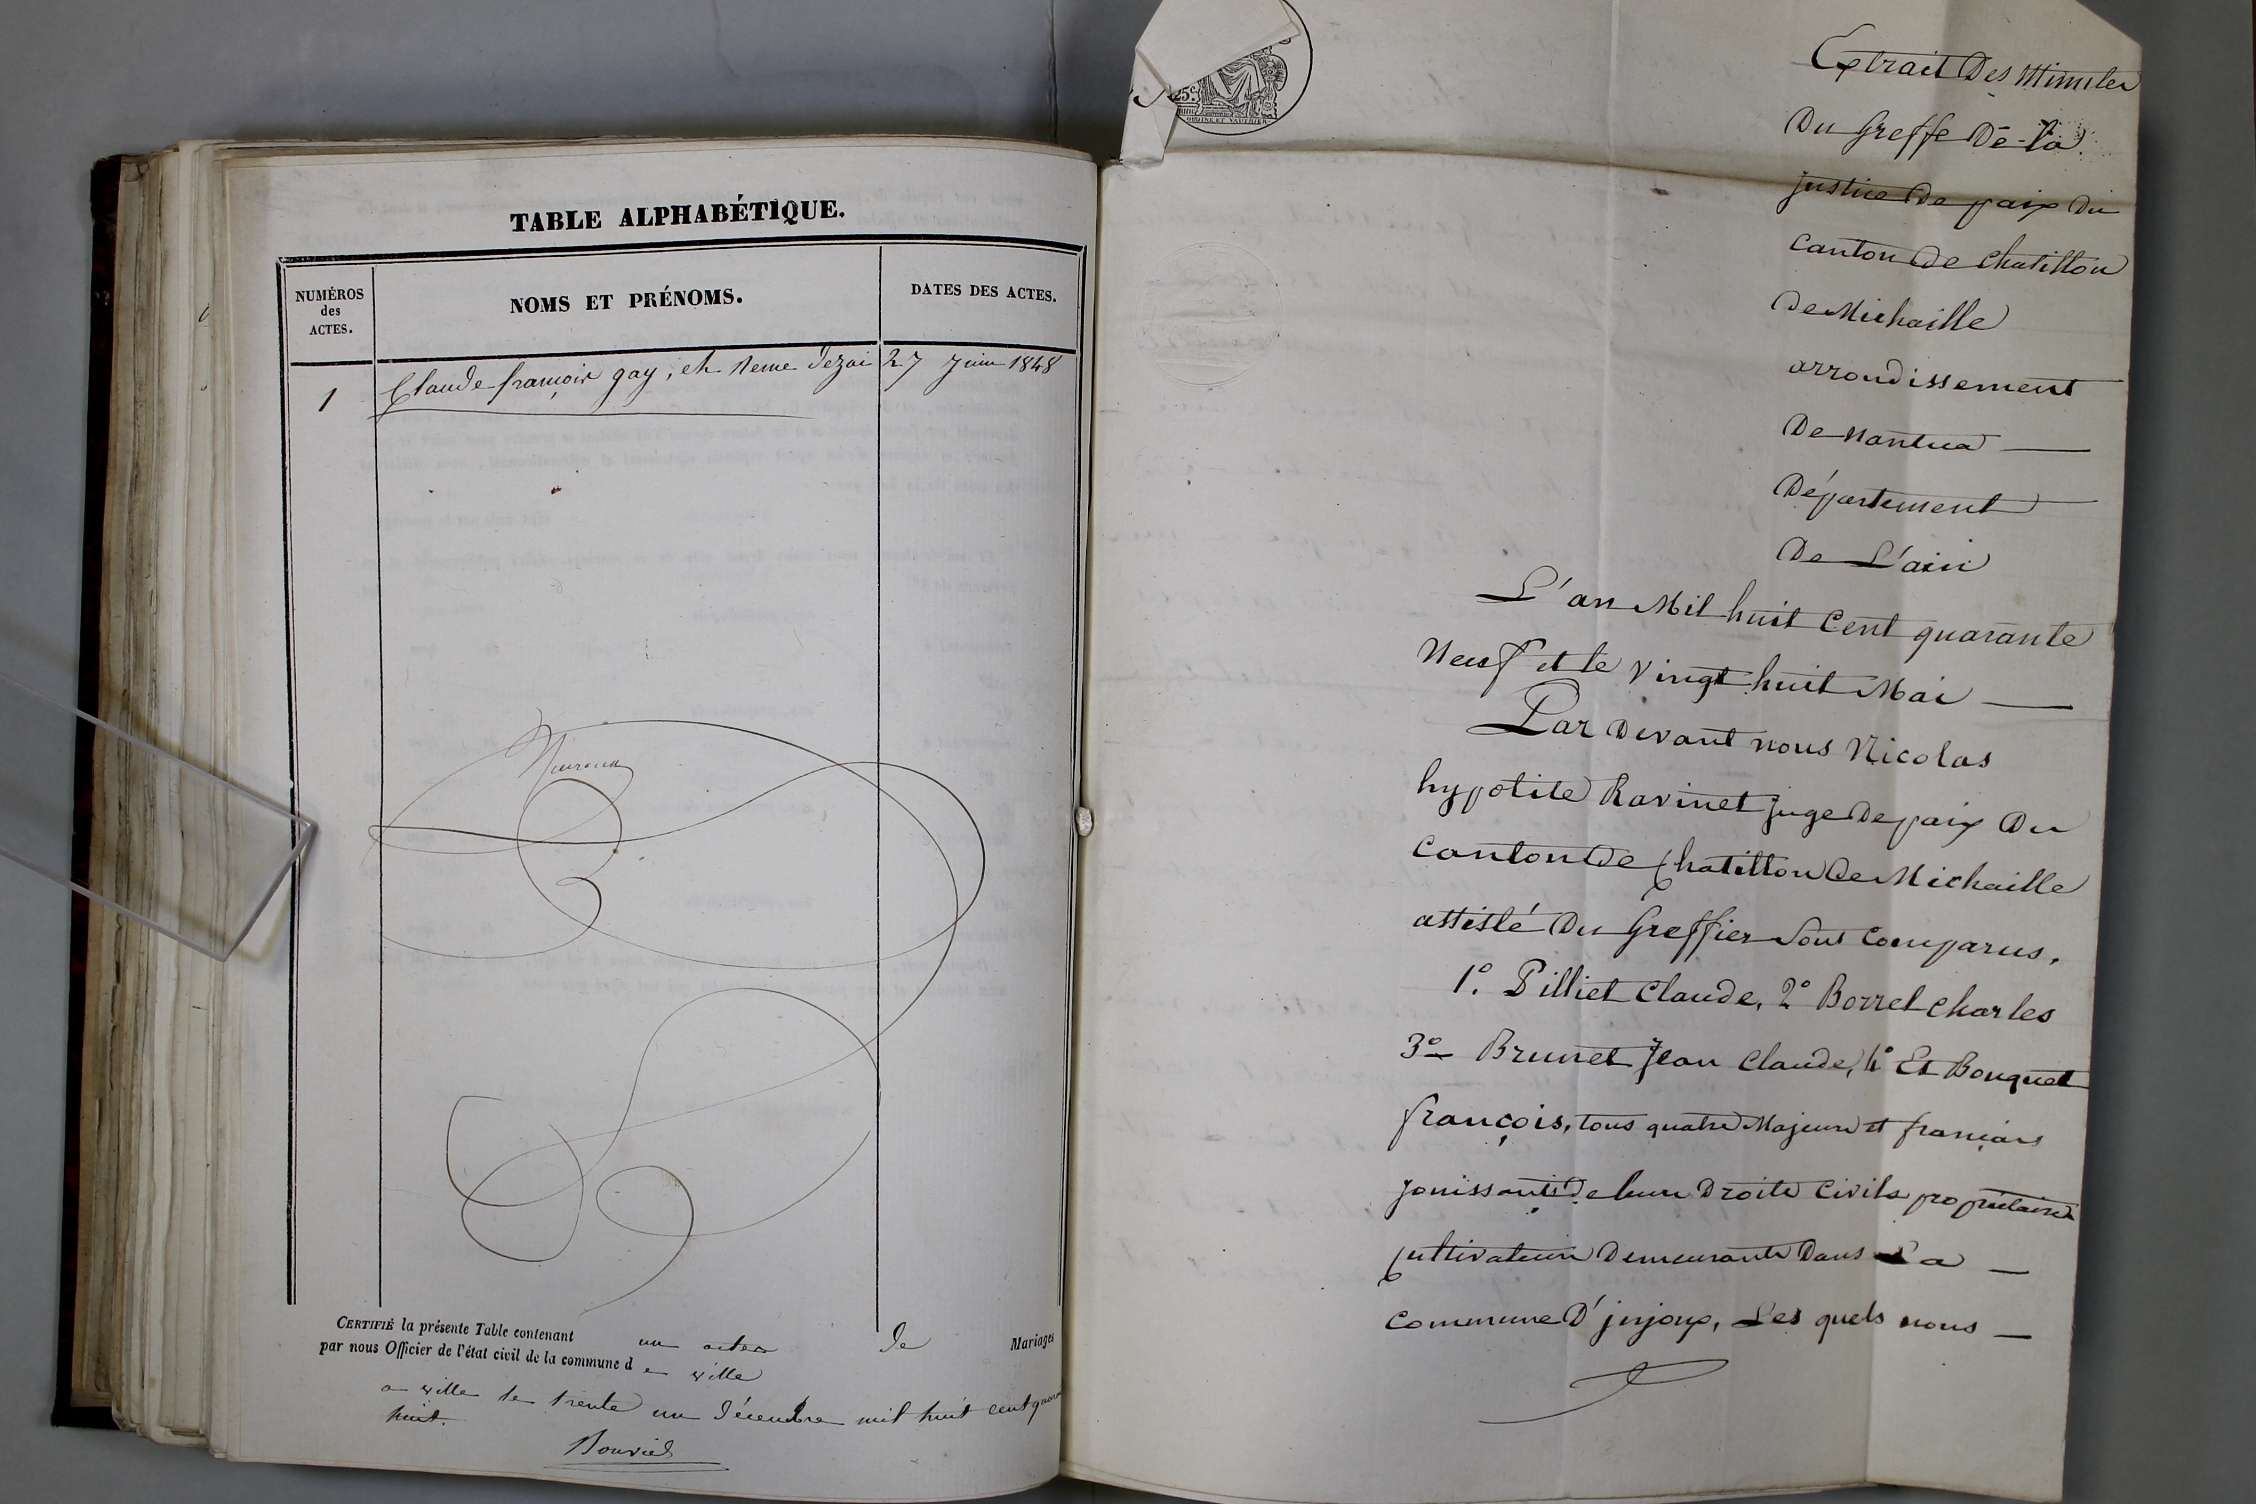 TABLE ALPHABÉTIQUE.
NUMÉROS
des
ACTES.
NOMS ET PRÉNOMS.
DATES DES ACTES.
1
Claude françois gay, et Reine Dezai
27 juin 1848
CERTIFIÉ la présente Table contenant un actes de Mariages
par nous Officier de l'état civil de la commune d e ville
a ville le trente un décembre mil huit cent quarante
huit.
Bouvier
25c.
Extrait Des Minutes
Du Greffe De la
justice De paix Du
canton De Chatillon
De Michaille
arrondissement
De Nantua
Département
De L'ain
L'an Mil huit Cent quarante
Neuf et le Vingt huit Mai
Par Devant nous Nicolas
hypolite Ravinet juge De paix Du
canton De Chatillon De Michaille
assisté Du Greffier Sont Comparus,
1º. Pilliet Claude, 2º Borrel Charles
3º Brunet Jean Claude, 4º Et Bouquet
françois, tous quatre Majeurs et français
jouissants De leurs Droits Civils propriétaires
Cultivateurs Demeurants Dans La
Commune D'injoux, Les quels nous